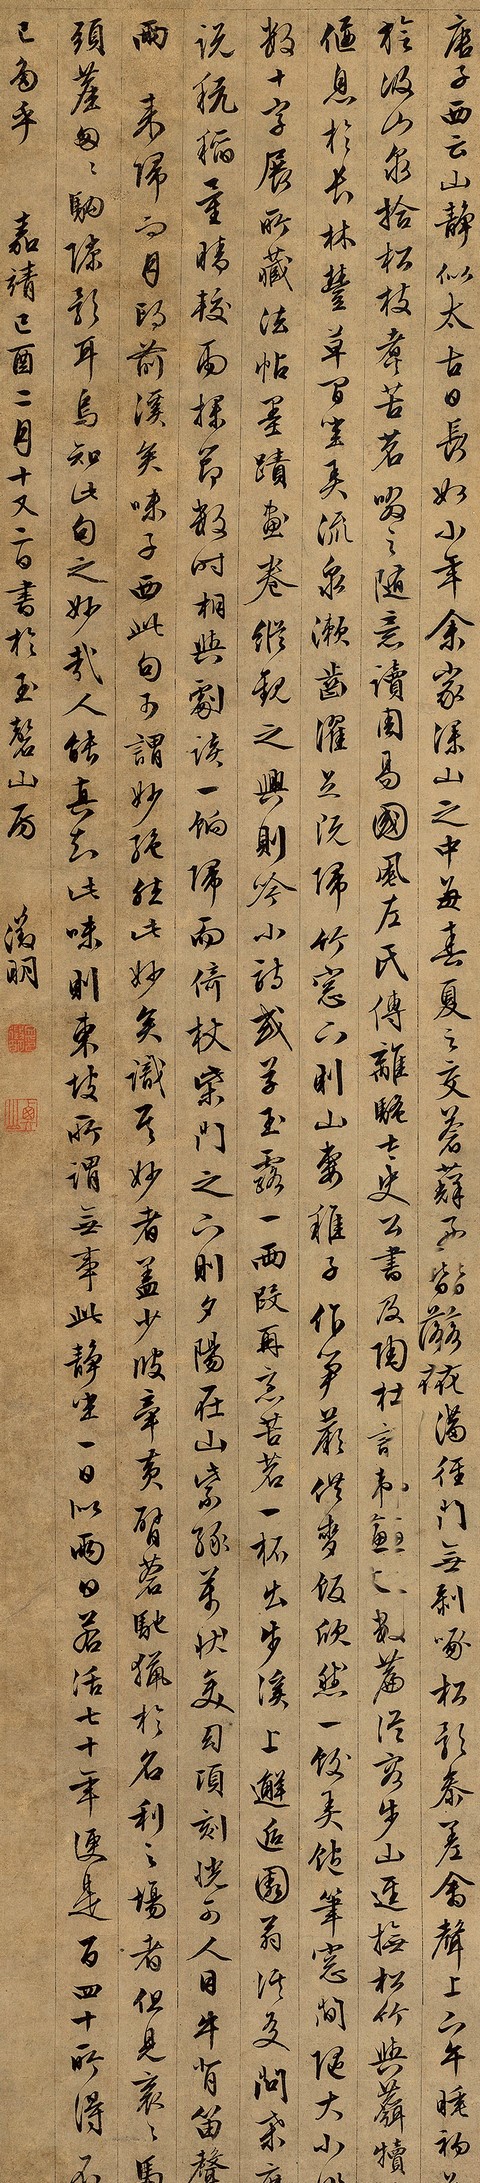 唐子西云山靜似太古日長如小年余家深山之中每春夏之交蒼蘚盈堦落花滿徑門無剝啄松影參差禽聲上下午睡初
旋汲山泉拾松枝煮苦茗啜之隨意讀周易國風左氏傳離騷太史公書及陶杜詩韓蘇文數篇從容步山逕撫松竹與麛犢
偃息於長林豐草間坐弄流泉漱齒濯足既歸竹窓下則山妻稚子作筍蕨供麥飯欣然一飽弄筆窓間隨大小
數十字展所藏法帖墨蹟畫卷縱觀之興則吟小詩或草玉露一兩段再烹苦茗一杯出步溪上邂逅園翁溪友問桑麻
說秔稻量晴較雨探節數時相與劇談一餉歸而倚杖柴門之下則夕陽在山紫綠萬狀變幻頃刻恍可人目牛背笛聲
兩來歸而月印前溪矣味子西此句可謂妙絕然此妙矣識其妙者蓋少彼牽黃臂蒼馳獵於名利之場者但見衮衮馬
頭塵匆匆駒隙影耳烏知此句之妙哉人能真知此味則東坡所謂無事此靜坐一日似兩日若活七十年便是百四十所得不
已多乎 嘉靖己酉二月十又二日書於玉磬山房 徵明